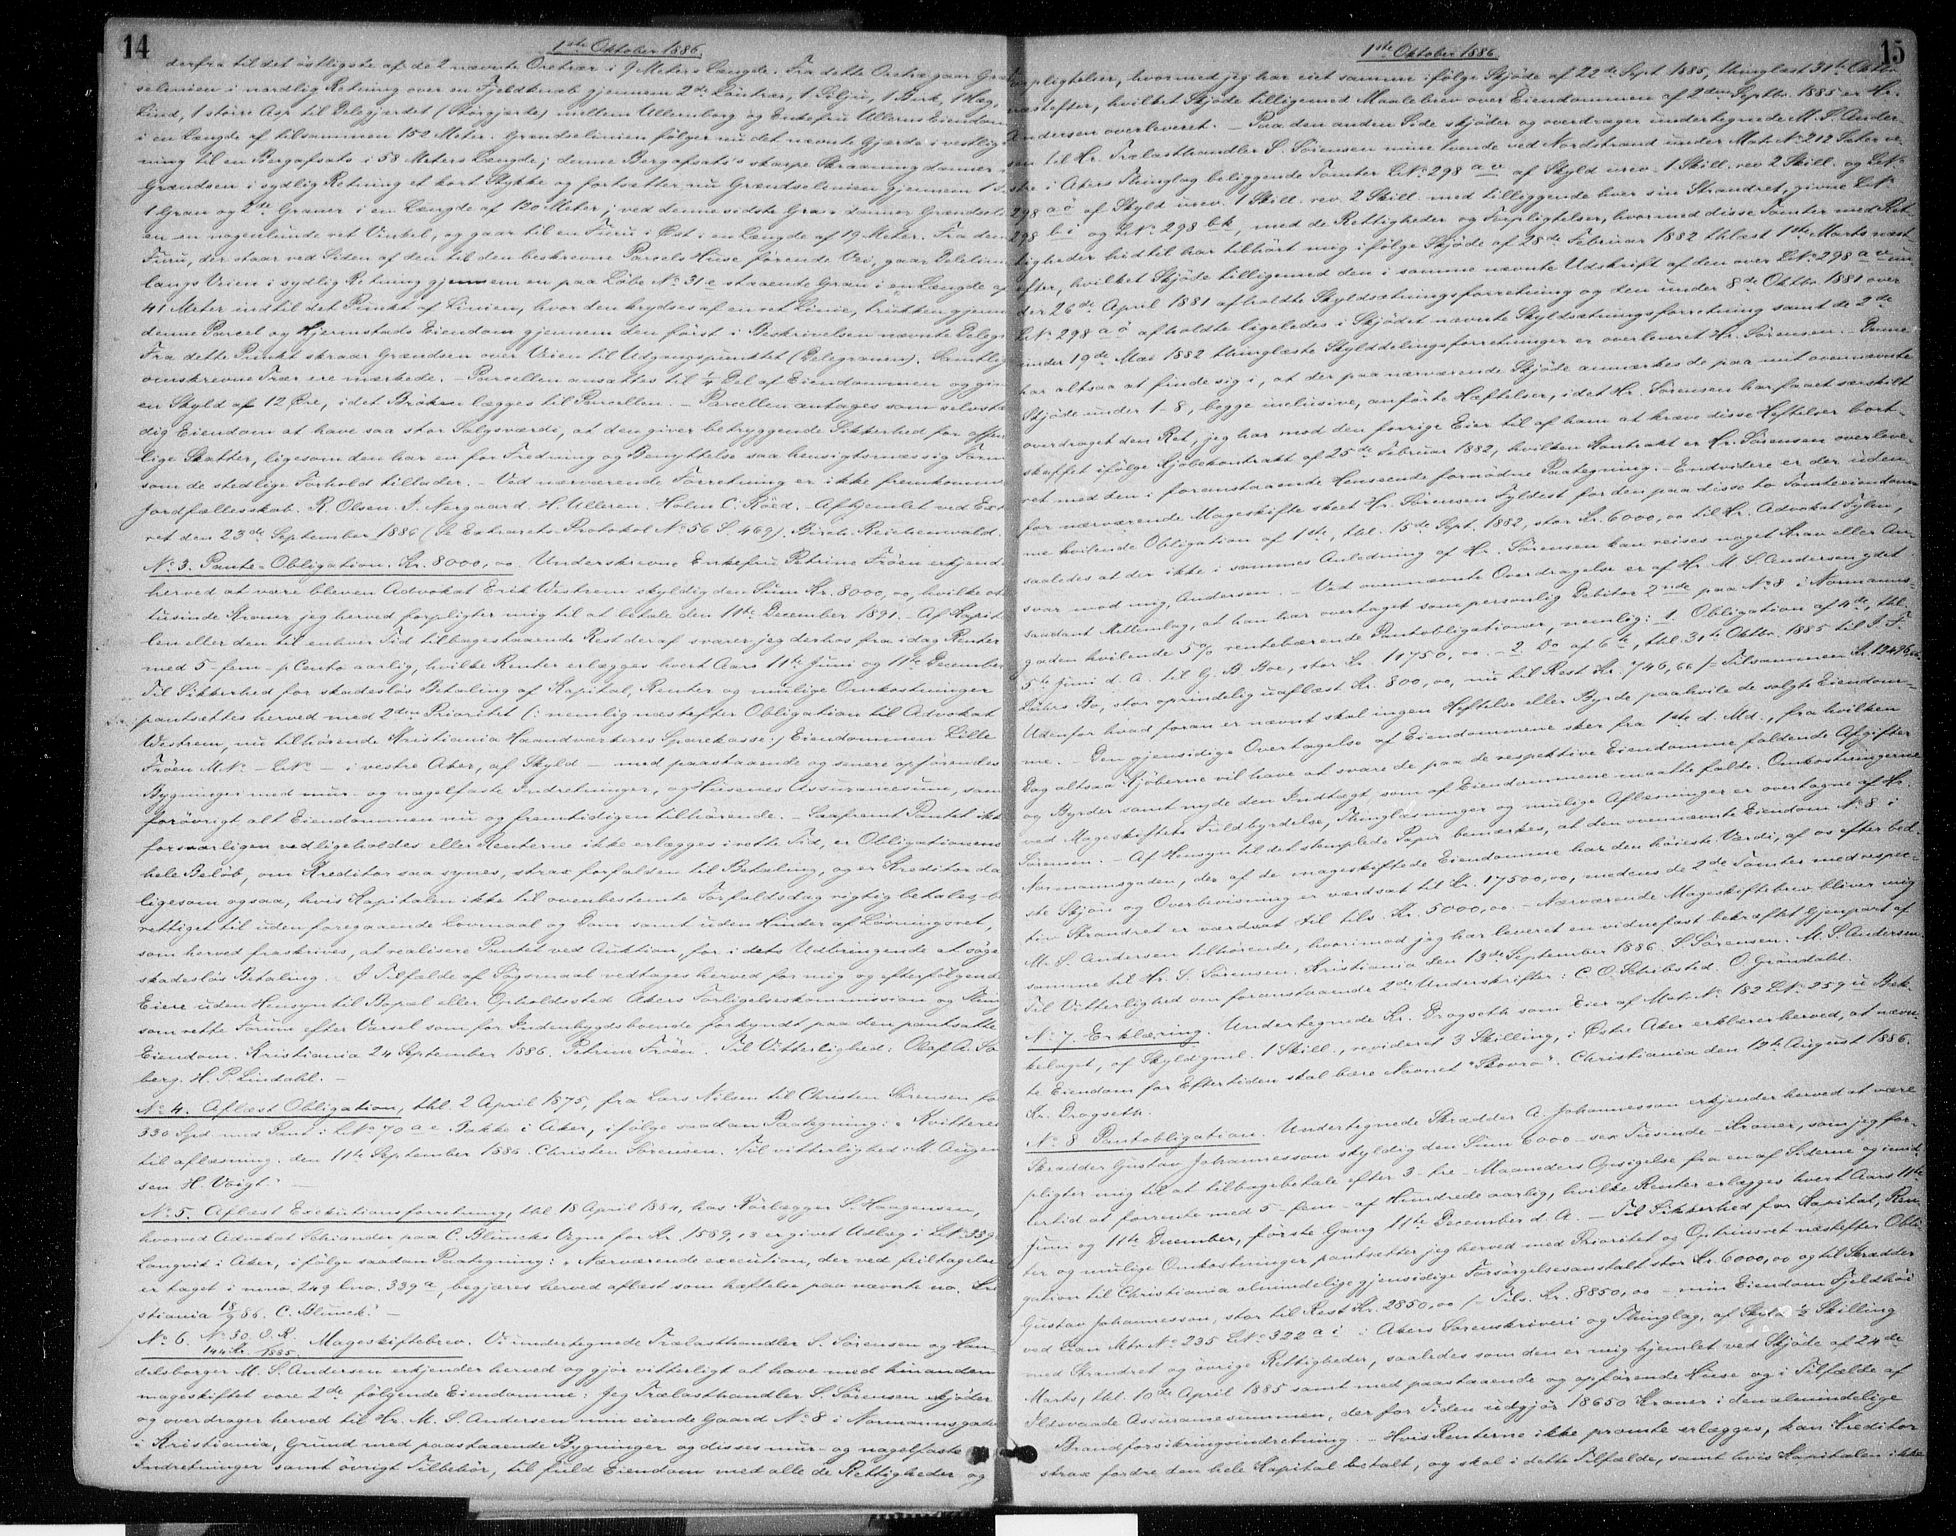 14
1ste Oktober 1886.
derfra til det östligste af de 2 nævnte Oretrær i 9 Meters Længde. Fra dette Oretræ gaar Græn
selenien i nordlig Retning over en Fjeldknab gjennem 2de Löntrær, 1 Silju, 1 Birk, 1 Hæg,
Lind, 1 större Asp til Delegjerdet (Störgjerde) mellem Ullernborg og Enkefru Ullerns Eiendom
i en Længde af tilsammen 152 Meter. Grændselinien følger nu det nævnte Gjærde i vestlig
ning til en Bergafsats i 58 Meters Længde; denne Bergafsats's skarpe Skraaning danner
Grændsen i sydlig Retning et kort Stykke og fortsætter nu Grændselinien gjennem 1
1 Gran og 2de Graner i en Længde af 120 Meter; ved denne sidste Gran danner Grændseli
en en nogenlunde ret Vinkel, og gaar til en Furu i Öst i en Længde af 19 Meter. Fra den
Furu, der staar ved Siden af den til den beskrevne Parcels Huse førende Vei, gaar Delelini
langs Veien i sydlig Retning gjennem en paa Löbe No 31 e staaende Gran i en Længde af
41 Meter indtil det Punkt af Linien, hvor den krydses af en ret Linie, trukken gjenn
denne Parcel og Hjermstads Eiendom gjennem den først i Beskrivelsen nævnte Deleg
Fra dette Punkt skraar Grændsen over Veien til Udgangspunktet (Delegranen). Samtlig
omskrevne Trær ere mærkede. – Parcellen ansættes til 1/4 Del af Eiendommen og giv
en Skyld af 12 Öre, idet Bröken lægges til Parcellen. – Parcellen antages som selvstæ
dig Eiendom at have saa stor Salgsværdi, at den giver betryggende Sikkerhed for offen
lige Skatter, ligesom den har en for Fredning og Benyttelse saa hensigtsmæssig Form
som de stedlige Forhold tillader. – Ved nærværende Forretning er ikke fremkomm
Jordfællesskab. R. Olsen. J. Nergaard. H. Ulleren. Holm C. Röed. Afhjemlet ved Ext
ret den 23de September 1886 (Se Extrarets Protokol No 56 S. 469). Birch-Reichenwald.
No 3. Pante-Obligation. Kr. 8000,00. Underskrevne Enkefru Petrine Fröen erkjend
herved at være bleven Advokat Erik Westrem skyldig den Sum Kr. 8000,00, hvilke ot
tusinde Kroner jeg herved forpligter mig til at betale den 11te December 1891. – Af Kapit
len eller den til enhver Tid tilbagestaaende Rest deraf svarer jeg derhos fra idag Renter
med 5 – fem – p Cento aarlig, hvilke Renter erlægges hvert Aars 11te Juni og 11te December
Til Sikkerhed for skadeslös Betaling af Kapital, Renter og mulige Omkostninger
pantsættes herved med 2den Prioritet (: nemlig næstefter Obligation til Advokat
Westrem, nu tilhörende Kristiania Haandværkeres Sparekasse:) Eiendommen Lille
Fröen M No – L No – i vestre Aker, af Skyld – med paastaaende og senere opførendes
Bygninger med mur- og nagelfaste Indretninger, og Husenes Assurancesum, sam
forövrigt alt Eiendommen nu og fremtidigen tilhörende. – Saafremt Pantet ikk
forsvarligen vedligeholdes eller Renterne ikke erlægges i rette Tid, er Obligationens
hele Belöb, om Kreditor saa synes, strax forfalden til Betaling, og er Kreditor da
ligesom ogsaa, hvis Kapitalen ikke til ovenbestemte Forfaldsdag rigtig betales, be
rettiget til uden foregaaende Lovmaal og Dom samt uden Hinder af Løsningsret,
som herved fraskrives, at realisere Pantet ved Auktion, for i dets Udbringende at søge
skadeslös Betaling. – I Tilfælde af Søgsmaal vedtages herved for mig og efterfølgende
Eiere uden Hensyn til Bopæl eller Opholdssted Akers Forligelseskommission og Thing
som rette Forum efter Varsel som for Indenbygdsboende forkyndt paa den pantsatte
Eiendom. Kristiania 24 September 1886. Petrine Fröen. Til Vitterlighed: Olaf A. So
berg. H. P. Lindahl. –
No 4. Aflæst Obligation, thl. 2 April 1875, fra Lars Nilsen til Christen Sörensen for
330 Spd. med Pant i L No 70 a e Bakke i Aker, ifølge saadan Paategning: „Kvitteres
til aflæsning. den 11te September 1886. Christen Sörensen. Til vitterlighed: M. Augen
sen. H. Voigt“ –
No 5. Aflæst Executionsforretning, thl 18 April 1884, hos Rörlægger S. Haagensen,
hvorved Advokat Schiander paa C. Bluncks Vegne for Kr. 1589,13 er givet Udlæg i L No 359
Langvik i Aker, ifølge saadan Paategning: „Nærværende execution, der ved feiltagelse
er taget i mno. 249 lno. 339 a, begjæres herved aflæst som heftelse paa nævnte no. Kri
stiania 18/9 86. C. Blunck“. –
No 6. No 30. O.R. 144 Kr. 1885. Mageskiftebrev. Vi undertegnede Trælasthandler S. Sörensen og Han
delsborger M. S. Andersen erkjender herved og gjør vitterligt at have med hinanden
mageskiftet vore 2de følgende Eiendomme: Jeg Trælasthandler S. Sörensen skjøder
og overdrager herved til Hr. M. S. Andersen min eiende Gaard No 8 i Normannsgaden
i Kristiania, Grund med paastaaende Bygninger og disses mur- og nagelfaste
Indretninger samt övrigt Tilbehör, til fuld Eiendom med alle de Rettigheder og
15
1ste Oktober 1886.
Forpligtelser, hvormed jeg har eiet samme ifølge Skjøde af 22de Sept 1885, thinglæst 31te Oktbr.
næstefter, hvilket Skjøde tilligemed Maalebrev over Eiendommen af 2den Septbr. 1885 er Hr.
Andersen overleveret. – Paa den anden Side skjøder og overdrager undertegnede M. S. Ander-
sen til Hr. Trælasthandler S. Sörensen mine tvende ved Nordstrand under Matr No 212 Sæter ve-
stre i Akers Thinglag beliggende Tomter L No 298 a v af Skyld urev. 1 Skill. rev 2 Skill. og L No
298 a ö af Skyld urev. 1 Skill. rev. 2 Skill. med tilliggende hver sin Strandret, givne L No
298 b i og L No 298 bk, med de Rettigheder og Forpligtelser, hvormed disse Tomter med Ret-
tigheder hidtil har tilhört mig ifølge Skjøde af 28de Februar 1882 thlæst 1ste Marts næst
efter, hvilket Skjøde tilligemed den i samme nævnte Udskrift af den over L No 298 a v un-
der 26de April 1881 afholdte Skyldsætningsforretning og den under 8de Oktbr. 1881 over
L No 298 a ö afholdte ligeledes i Skjødet nævnte Skyldsætningsforretning samt de 2de
under 19de Mai 1882 thinglæste Skylddelingsforretninger er overleveret Hr. Sörensen. – Denne
har altsaa at finde sig i, at der paa nærværende Skjøde anmærkes de paa mit ovennævnte
Skjøde under 1-8, begge inclusive, anförte Hæftelser, idet Hr. Sörensen har faaet særskilt
overdraget den Ret, jeg har mod den forrige Eier til af ham at kræve disse Heftelser bort-
skaffet ifølge Kjøbekontrakt af 25de Februar 1882, hvilken Kontrakt er Hr. Sörensen overleve-
ret med den i foranstaaende Henseende fornødne Paategning. – Endvidere er der uden-
for nærværende Mageskifte skeet Hr. Sörensen Fyldest for den paa disse to Tomteeiendom-
me hvilende Obligation af 1ste, thl. 15de Sept. 1882, stor Kr. 6000,00 til Hr. Advokat Fylen,
saaledes at der ikke i sammes Anledning af Hr. Sörensen kan reises noget Krav eller An-
svar mod mig, Andersen. – Ved ovennævnte Overdragelse er af Hr. M. S. Andersen gjdet
saadant Mellemlag, at han har overtaget som personlig Debitor 2nde paa No 8 i Normanns-
gaden hvilende 5% rentebærende Pantobligationer, nemlig: 1. Obligation af 4de, thl.
5te Juni d. A. til G. B Boe, stor Kr. 11750,00. – 2 Do af 6te, thl 31te Oktbr. 1885 til J. F.
Lührs Bo, stor oprindelig uaflæst Kr. 800,00, nu til Rest Kr. 746,66 /= Tilsammen Kr. 12496,66
Udenfor hvad foran er nævnt skal ingen Heftelse eller Byrde paahvile de solgte Eiendom-
me. – Den gjensidige Overtagelse af Eiendommene sker fra 1ste d. Md., fra hvilken
Dag altsaa Kjøberne vil have at svare de paa de respektive Eiendomme faldende Afgifter
og Byrder samt nyde den Indtægt, som af Eiendommene maatte falde. Omkostningerne
ved Mageskiftets Fuldbyrdelse, Thinglæsninger og mulige Aflæsninger er overtagne af Hr.
Sörensen. – Af Hensyn til det stemplede Papir bemærkes, at den ovennævnte Eiendom No 8 i
Normannsgaden, der af de mageskiftede Eiendomme har den høieste Værdi, af os efter bed-
ste Skjön og Overbevisning er værdsat til Kr. 17500,00, medens de 2de Tomter med respec-
tiv Strandret er værdsat til tils. Kr. 5000,00. – Nærværende Mageskiftebrev bliver mig
M. S. Andersen tilhörende, hvorimod jeg har leveret en vidnefast bekræftet Gjenpart af
samme til Hr. S. Sörensen. Kristiania den 13de September 1886. S. Sörensen. M. S. Andersen.
Til Vitterlighed om foranstaaende 2de Underskrifter: C. O. Schibsted. O. Gröndahl.
No 7. Erklæring. Undertegnede Kr. Dragseth som Eier af Matr. No 182 L No 259 u Bek-
kelaget, af Skyld gml. 1 Skill., revideret 3 Skilling, i Østre Aker erklærer herved, at nævn-
te Eiendom for Eftertiden skal bære Navnet "Skovro". Christiania den 12te August 1886.
Kr. Dragseth.
No 8 Pantobligation. Undertegnede Skrædder A. Johannesson erkjender herved at være
Skrædder Gustav Johannesson skyldig den Sum 6000 – sex Tusinde – Kroner, som jeg for-
pligter mig til at tilbagebetale efter 3 – tre – Maaneders Opsigelse fra en af Siderne og imid-
lertid at forrente med 5 – fem – af Hundrede aarlig, hvilke Renter erlægges hvert Aars 11te
Juni og 11te December, første Gang 11te December d. A. – Til Sikkerhed for Kapital, Ren-
ter og mulige Omkostninger pantsætter jeg herved med Prioritet og Optrinsret næstefter Obli-
gation til Christiania almindelige gjensidige Forsørgelsesanstalt stor Kr. 6000,00 og til Skrædder
Gustav Johannesson, stor til Rest Kr. 2850,00 /= Tils. Kr. 8850,00 – min Eiendom Fjeldhöi
ved Lian Mtr No 235 L No 322 a i i Akers Sorenskriveri og Thinglag, af Skyld 1/2 Skilling
med Strandret og øvrige Rettigheder, saaledes som den er mig hjemlet ved Skjøde af 24de
Marts, thl. 10de April 1885 samt med paastaaende og opførende Huse og i Tilfælde af
Ildsvaade Assurancesummen, der for Tiden udgjör 18650 Kroner i den almindelige
Brandforsikringsindretning. – Hvis Renterne ikke promte erlægges, kan Kreditor
strax fordre den hele Kapital betalt, og skal i dette Tilfælde, samt hvis Kapitalen ikke